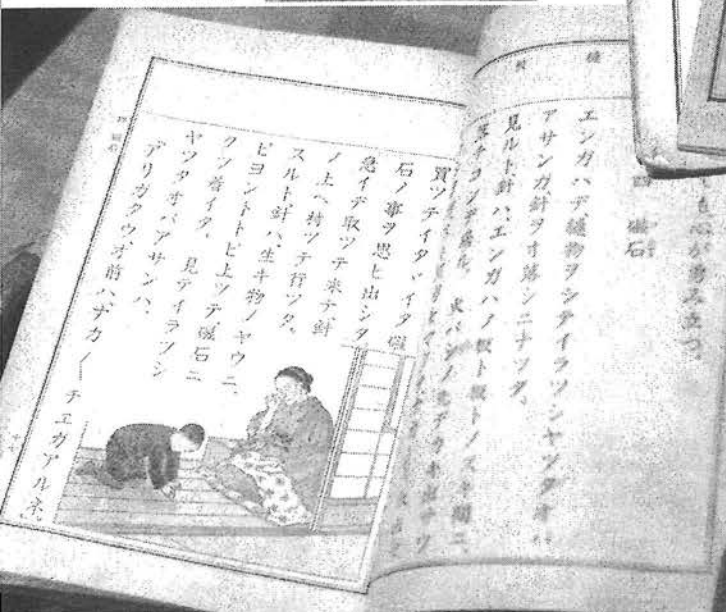 も心が勇み立つ。
四 磁石
エンガハデ縫物ヲシテイラツシヤツタオバ
アサンガ、針ヲオ落シニナツタ。
見ルト、針ハ、エンガハノ板ト板トノスキ間ニ、
落チコンデ居ル。火バシノ先デカキ出サウ
買ツテイタヾイタ磁
石ノ事ヲ思ヒ出シタ
急イデ取ツテ来テ針
ノ上ヘ持ツテ行ツタ。
スルト針ハ、生キ物ノヤウニ、
ピヨントトビ上ツテ磁石ニ
クツ着イタ。見テイラツシ
ヤツタオバアサンハ、
アリガタウ、オ前ハナカ〳〵チエガアルネ。
四 磁石